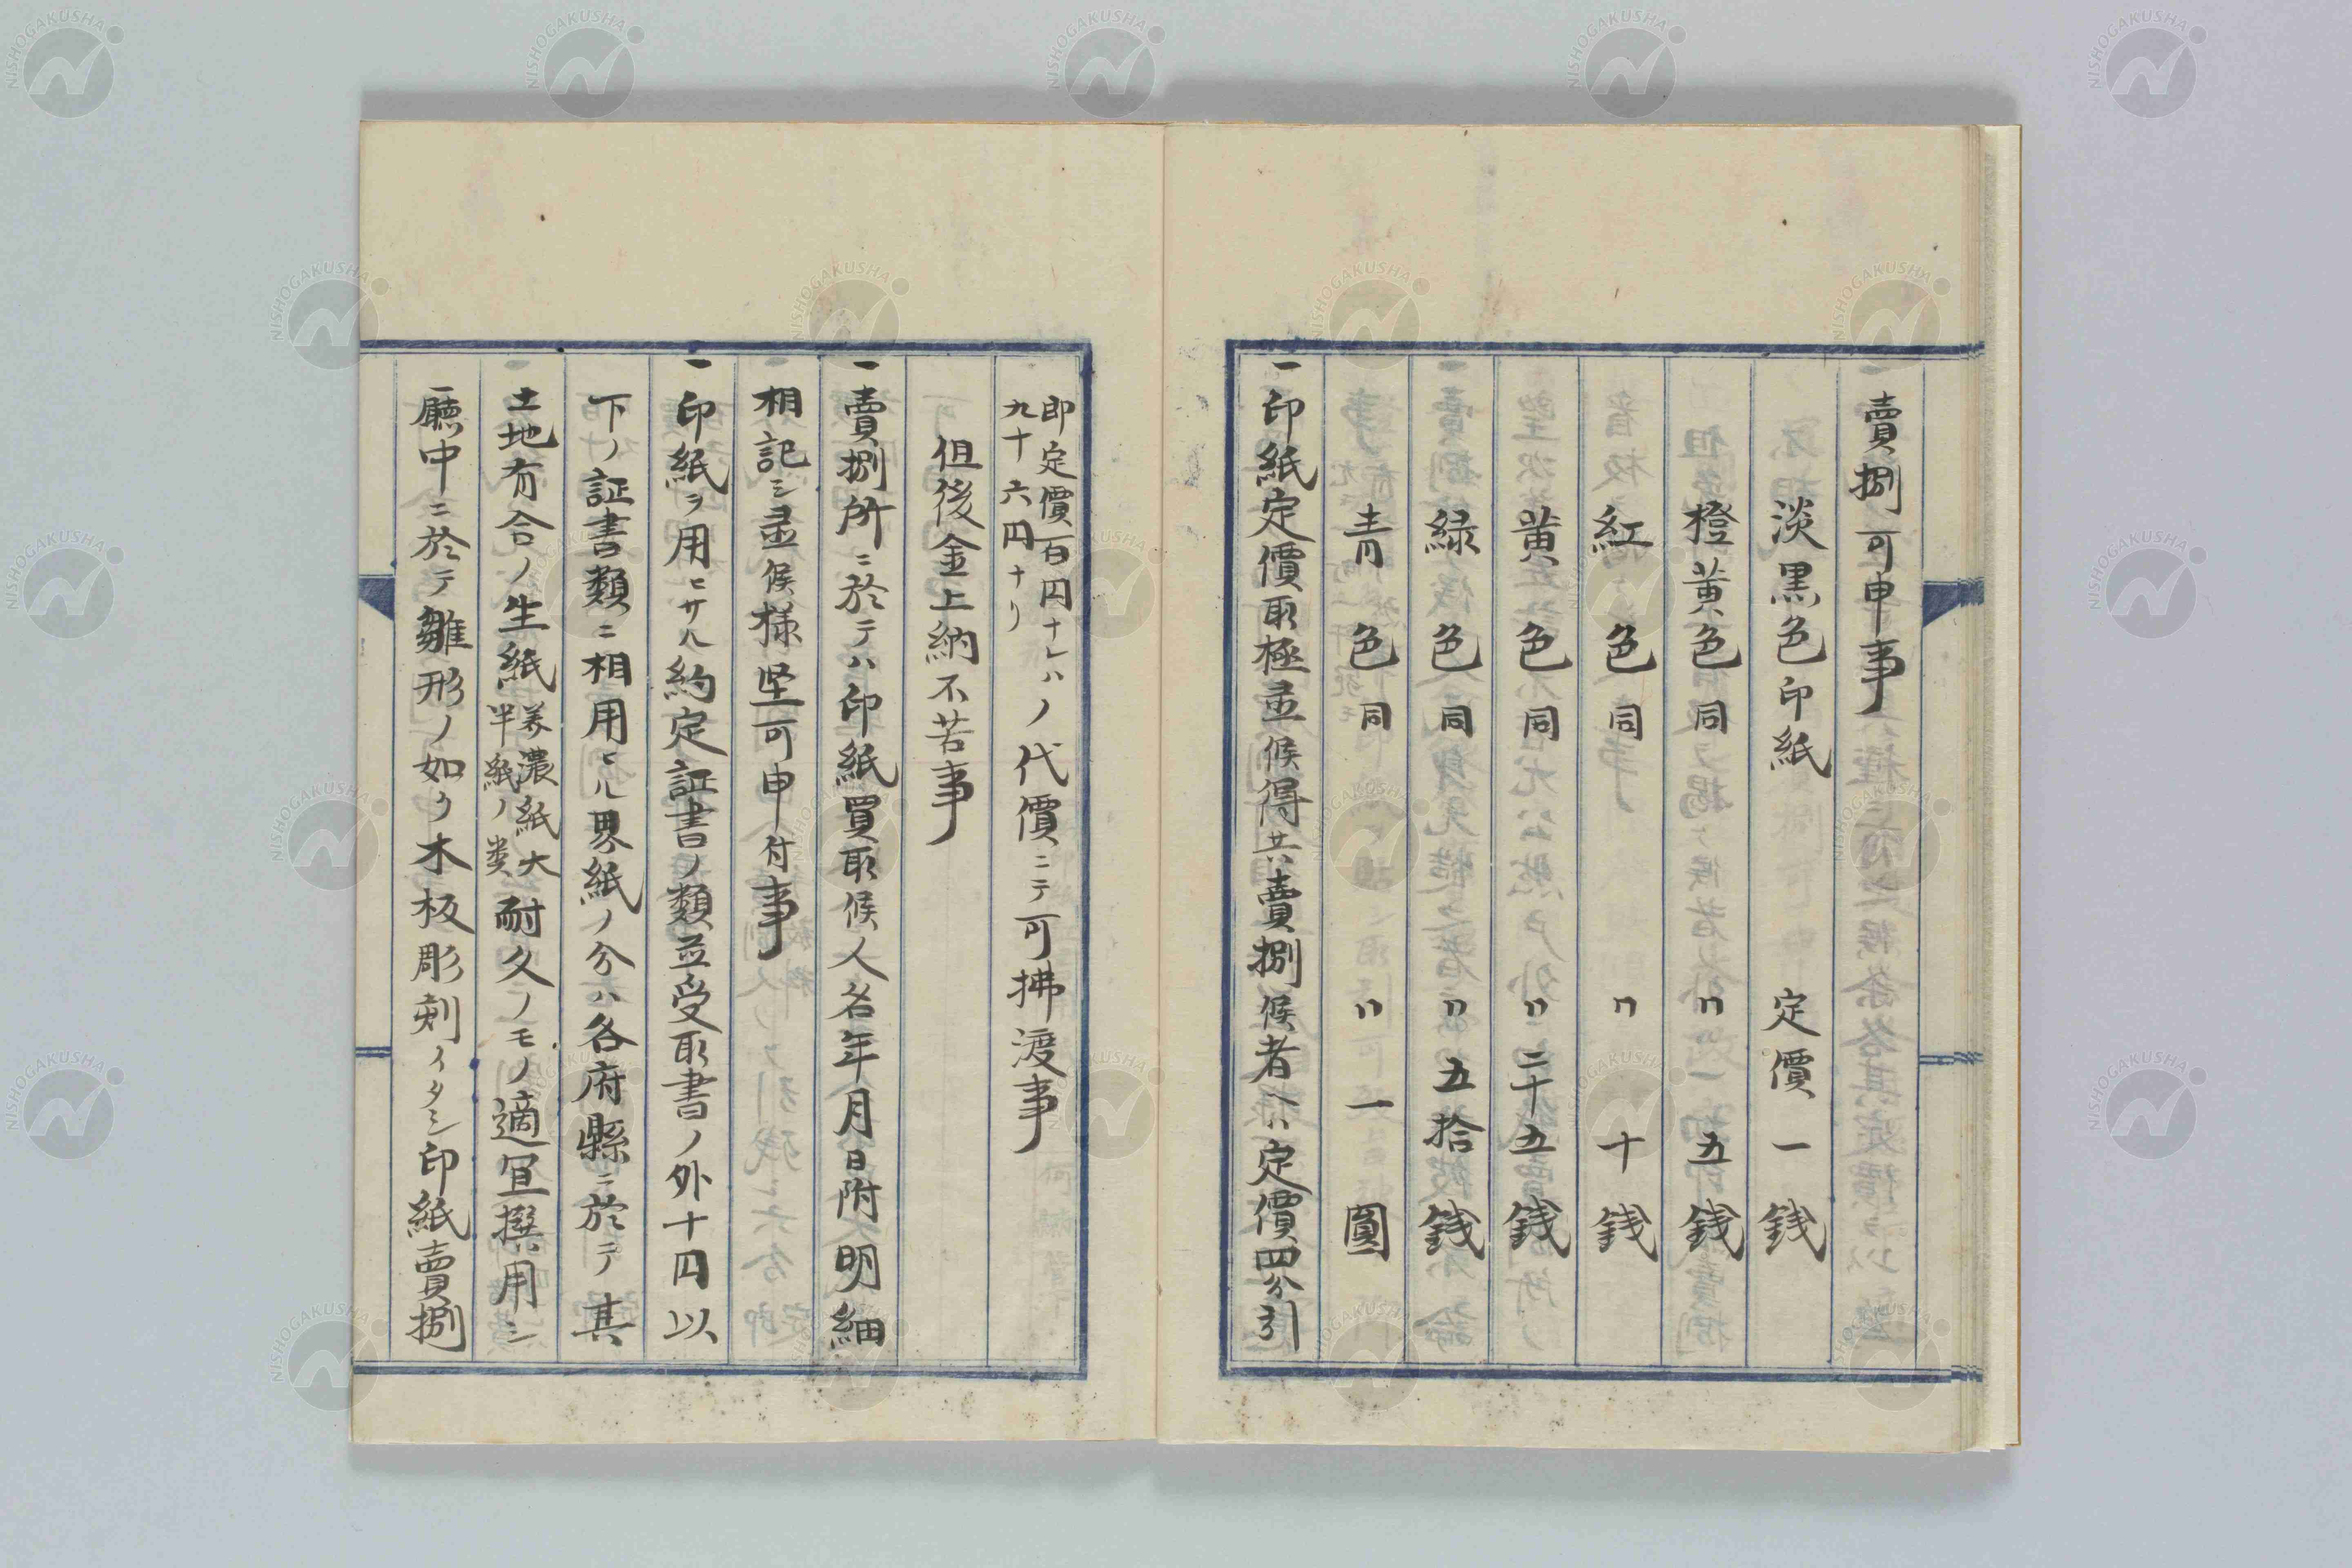 賣捌可申事
淡黒色印紙 定價一銭
橙黄色同 〃五銭
紅色同 〃十銭
黄色同 〃二十五銭
緑色同 〃五拾銭
青色同 〃一圓
一印紙定價取極並候得共賣捌候者ヘハ定價四分引
即定價百円ナレハ
九十六円ナリ
ノ代價ニテ可拂渡事
但後金上納不苦事
一賣捌所ニ於テハ印紙買取候人名年月日附明細
相記シ並候様堅可申付事
一印紙ヲ用ヒサル約定証書ノ類並受取書ノ外十円以
下ノ証書類ニ相用ヒル界紙ノ分ハ各府縣ニ於テ其
土地有合ノ生紙
美濃紙大
半紙ノ類
耐久ノモノ適宜撰用シ
廳中ニ於テ雛形ノ如ク木板彫刻イタシ印紙賣捌
NISHOGAKUSHA